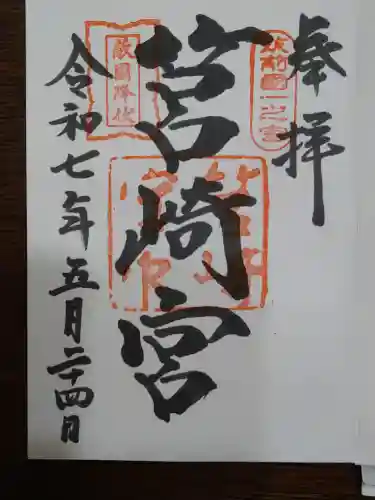 奉拝
筑前國一之宮
筥崎宮
筥崎宮印
敵國降伏
令和七年五月二十四日